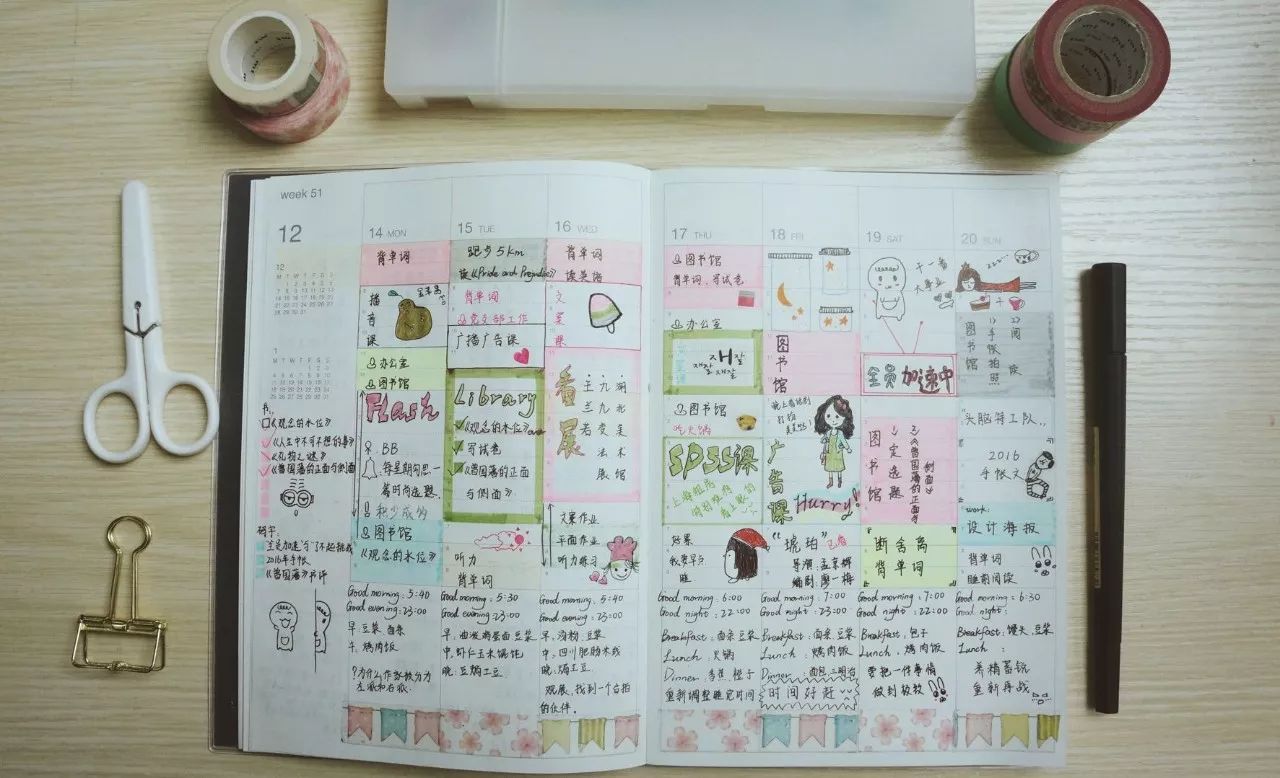 week 51
12
书:
《观念的水位》
《人生中不可不想的事》
《礼物之谜》
《曾国藩的正面与侧面》
码字:
2016年手帐
《曾国藩》书评
14 MON
背单词
播音课
办公室
图书馆
Flash
BB
积少成多
图书馆
《观念的水位》
Good morning: 5:40
Good evening: 23:00
早. 豆浆
午. 烤肉饭
15 TUE
跑步5km
读《Pride and Prejudice》
背单词
党支部工作
广播广告课
Library
《观念的水位》
写试卷
《曾国藩的正面
与侧面》
听力
背单词
Good morning: 5:30
Good evening: 23:00
中. 虾仁玉米馄饨
晚: 豆焖土豆
16 WED
背单词
读英语
看展
文案作业
平面作业
听力练习
Good morning: 5:40
Good evening: 23:00
早. 汤粉 豆浆
中. 四川肥肠米线
晚: 焗土豆
观展. 找到一个合拍
的伙伴.
17 THU
图书馆
背单词、写试卷
办公室
图书馆
吃火锅
SPSS课
我要早点
睡
Good morning: 6:00
Good night: 22:00
Breakfast: 豆浆
Lunch: 火锅
Dinner: 橙子
重新调整睡觉时间
18 FRI
图书馆
广告课
Hurry!
"琥珀"
导演: 孟京辉
编剧: 廖一梅
Good morning: 7:00
Good night: 23:00
Breakfast: 豆浆
Lunch: 烤肉饭
Dinner: 面包 三明治
时间好赶
19 SAT
干一番
大事业
全员加速中
图书馆
1定选题
断舍离
背单词
Good morning: 7:00
Good night: 22:00
Breakfast: 包子
Lunch: 烤肉饭
要把一件事情
做到极致
20 SUN
zzz..
图书馆
1)手帐拍照
2)阅读
头脑特工队..
2016
手帐文
work:
设计海报
背单词
睡前阅读
Good morning: 6:30
Good night:
Breakfast: 馒头. 豆浆
Lunch:
养精蓄锐
重新再战